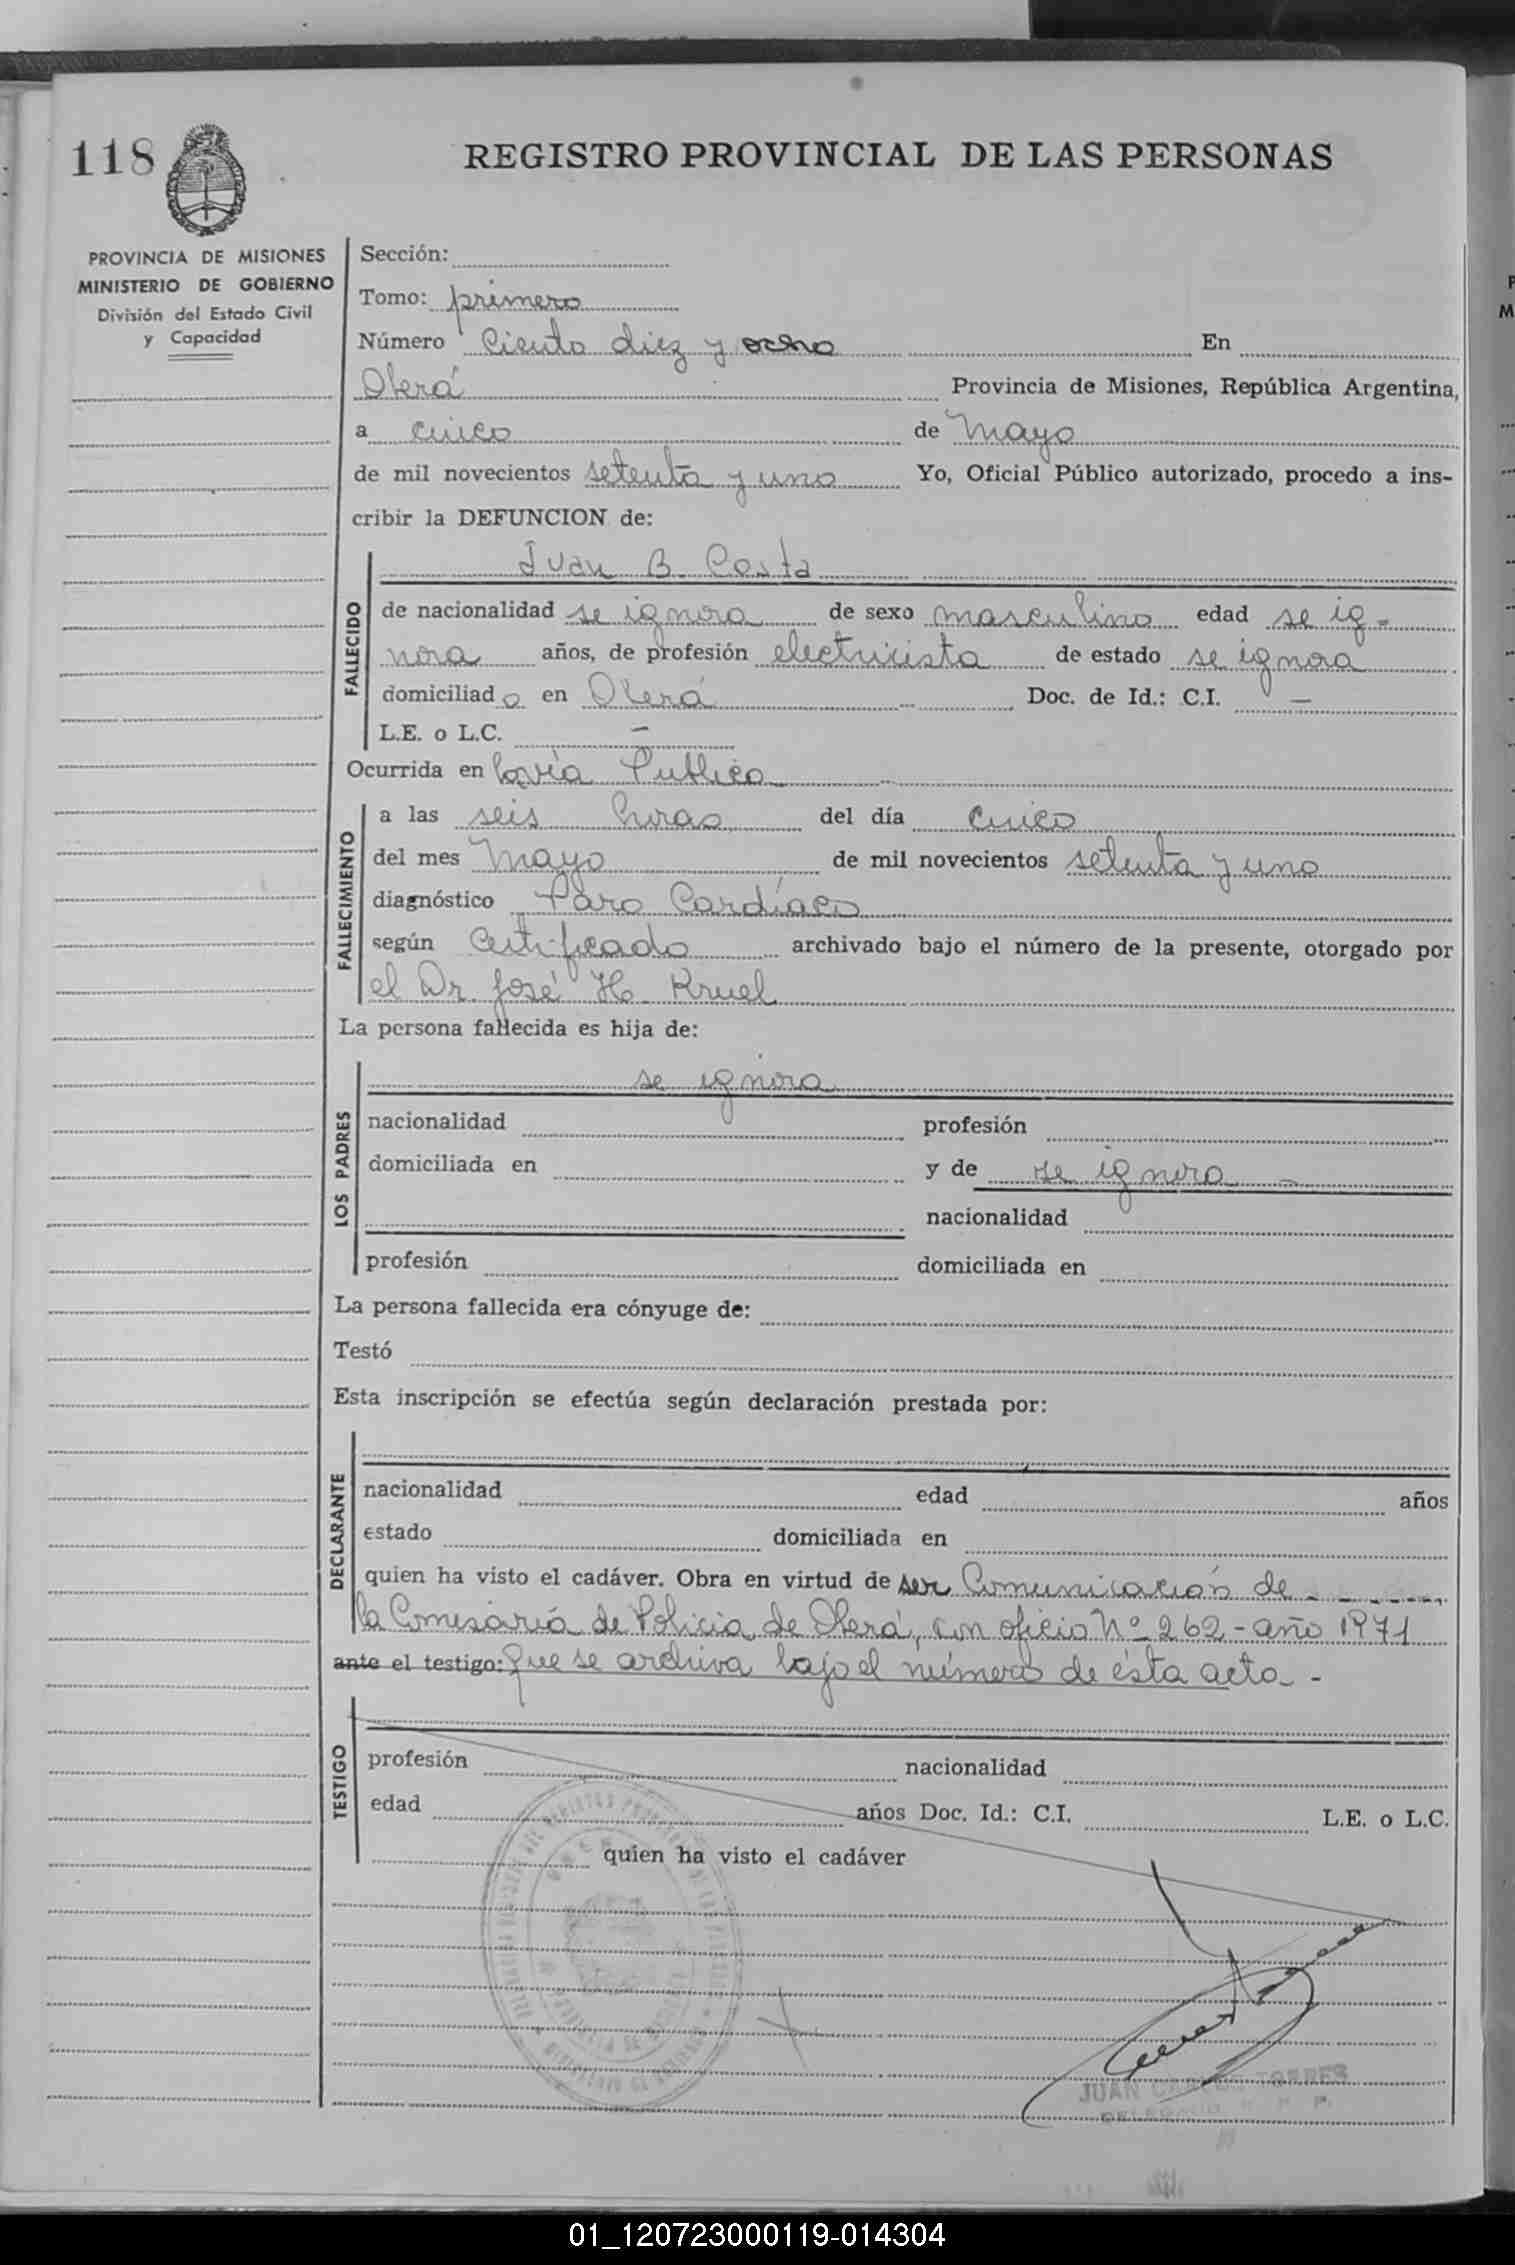 118
REGISTRO PROVINCIAL DE LAS PERSONAS
PROVINCIA DE MISIONES
MINISTERIO DE GOBIERNO
División del Estado Civil
y Capacidad
Sección:
Tomo: primero
Número Ciento diez y ocho En
Oberá Provincia de Misiones, República Argentina,
a cinco de Mayo
de mil novecientos setenta y uno Yo, Oficial Público autorizado, procedo a ins-
cribir la DEFUNCION de:
FALLECIDO
Juan B. Costa
de nacionalidad se ignora de sexo masculino edad se ig-
nora años, de profesión electricista de estado se ignora
domiciliado en Oberá Doc. de Id.: C.I. —
L.E. o L.C. —
Ocurrida en la vía Publica
FALLECIMIENTO
a las seis horas del día cinco
del mes Mayo de mil novecientos setenta y uno
diagnóstico Paro Cardíaco
según Certificado archivado bajo el número de la presente, otorgado por
el Dr. José H. Kruel
La persona fallecida es hija de:
LOS PADRES
se ignora
nacionalidad profesión
domiciliada en y de se ignora -
nacionalidad
profesión domiciliada en
La persona fallecida era cónyuge de:
Testó
Esta inscripción se efectúa según declaración prestada por:
DECLARANTE
nacionalidad edad años
estado domiciliada en
quien ha visto el cadáver. Obra en virtud de ser Comunicación de
la Comisaría de Policia de Oberá, con oficio Nº 262 - año 1971
ante el testigo: que se archiva bajo el número de ésta acta -
TESTIGO
profesión nacionalidad
edad años Doc. Id.: C.I. L.E. o L.C.
quien ha visto el cadáver
JUAN CARLOS TORRES
DELEGADO R. P. P.
01_120723000119-014304